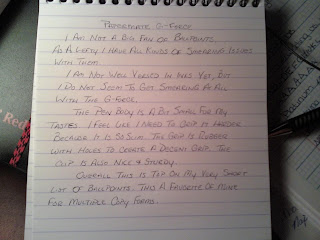 Papermate G-Force
I Am Not A Big Fan of Ballpoints.
As A Lefty I Have All Kinds of Smearing Issues
With Them.
I Am Not Well Versed in Inks Yet, But
I Do Not Seem To Get Smearing At All
With The G-Force.
The Pen Body Is A Bit Small For My
Tastes. I Feel Like I Need To Grip It Harder
Because It Is So Slim. The Grip Is Rubber
With Holes To Create A Decent Grip. The
Clip Is Also Nice & Sturdy.
Overall This Is Top On My Very Short
List of Ballpoints. This A Favorite of Mine
For Multiple Copy Forms.
Red